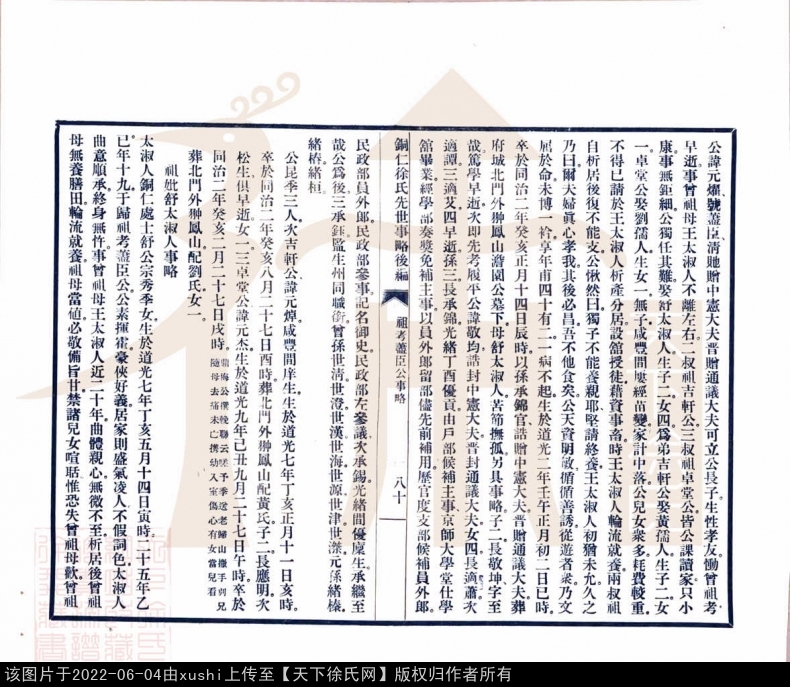 公諱元燿號藎臣清貤贈中憲大夫晉贈通議大夫可立公長子生性孝友慟曾祖考
早逝事曾祖母王太淑人不離左右二叔祖吉軒公三叔祖卓堂公皆公課讀家只小
康事無鉅細公獨任其難娶舒太淑人生子二女四為弟吉軒公娶黃孺人生子二女
一卓堂公娶劉孺人生女一無子咸豐間屢經苗變家計中落公兒女衆多耗費較重
不得已請於王太淑人析產分居設舘授徒藉資事畜時王太淑人輪流就養兩叔祖
自析居後復不能支公愀然曰獨子不能養親耶堅請終養王太淑人初猶未允久之
乃曰爾夫婦眞心孝我其後必昌吾不他食矣公天資明敏循循善誘從遊者衆乃文
屈於命未博一衿享年甫四十有二一病不起生於道光二年壬午正月初二日巳時
卒於同治二年癸亥正月十四日辰時以孫承錦官誥贈中憲大夫晉贈通議大夫葬
府城北門外翀鳳山澹園公墓下母舒太淑人苦節撫孤另具事略子二長敬坤字至
哉篤學早逝次即先考履平公諱敬均誥封中憲大夫晉封通議大夫女四長適蕭次
適譚三適艾四早逝孫三長承錦光緒丁酉優貢由戶部候補主事京師大學堂仕學
舘畢業經學部奏奬免補主事以員外郎留部儘先前補用歷官度支部候補員外郎
銅仁徐氏先世事略後編
祖考藎臣公事略
八十
民政部員外郎民政部參事記名御史民政部左參議次承錫光緒間優廩生承繼至
哉公為後三承鈺監生州同職銜曾孫世清世澄世漢世海世源世津世濴元孫緒榛
緒椿緒桓
公昆季三人次吉軒公諱元煒咸豐間庠生生於道光七年丁亥正月十一日亥時
卒於同治二年癸亥八月二十七日酉時葬北門外翀鳳山配黃氏子二長應明次
松生俱早逝女一三卓堂公諱元杰生於道光九年己丑九月二十七日午時卒於
同治二年癸亥二月二十七日戌時
葬北門外翀鳳山配劉氏女一
祖妣舒太淑人事略
太淑人銅仁處士舒公宗秀季女生於道光七年丁亥五月十四日寅時二十五年乙
巳年十九于歸祖考藎臣公公素揮霍豪俠好義居家則盛氣凌人不假詞色太淑人
曲意順承終身無忤事曾祖母王太淑人近二十年曲體親心無微不至析居後曾祖
母無養膳田輪流就養祖母當値必敬備旨甘禁諸兒女喧聒惟恐失曾祖母歡曾祖
该图片于2022-06-04由xushi上传至【天下徐氏网】版权归作者所有